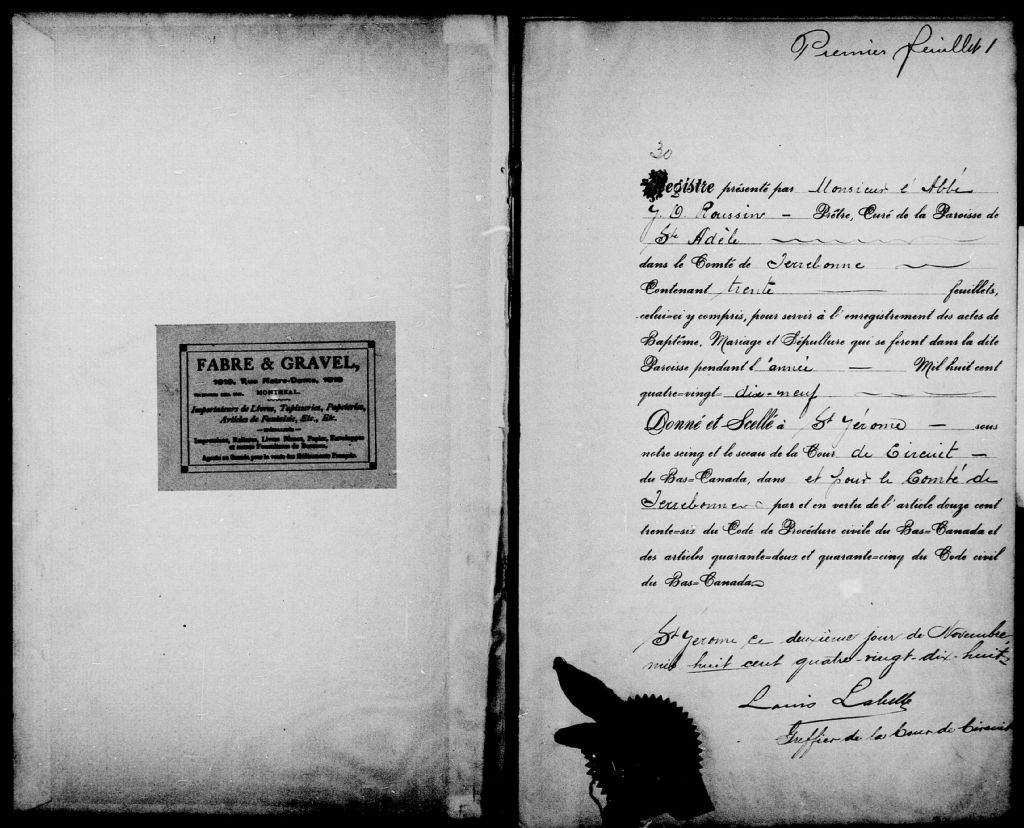 FABRE & GRAVEL,
Rue Notre-Dame,
MONTREAL.
Importateurs de Livres, Tapisseries, Papeteries,
Articles de Fantaisie, Etc., Etc.
Impressions, Reliures, Livres Blancs, Papier, Enveloppes
et autres Fournitures de Bureaux.
Premier feuillet 1
30
Registre présenté par Monsieur l'Abbé
Roussin — Prêtre, Curé de la Paroisse de
Ste Adèle
dans le Comté de Terrebonne
Contenant trente — feuillets,
celui-ci y compris, pour servir à l'enregistrement des actes de
Baptême, Mariage et Sépulture qui se feront dans la dite
Paroisse pendant l'année — Mil huit cent
quatre-vingt- dix-neuf
Donné et Scellé à St Jérome — sous
notre seing et le sceau de la Cour de Circuit —
du Bas-Canada, dans et pour le Comté de
Terrebonne par et en vertu de l'article douze cent
trente-six du Code de Procédure civile du Bas-Canada et
des articles quarante-deux et quarante-cinq du Code civil
du Bas-Canada
St Jérome ce deuxième jour de Novembre
mil huit cent quatre-vingt-dix-huit
Louis Labelle
Greffier de la Cour de Circuit